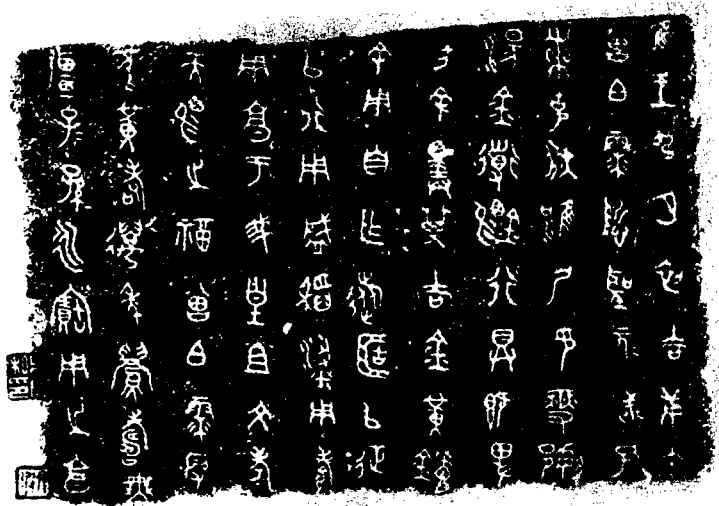 隹王九月初吉庚午
曾白霥悊聖元武孔
黹克狄淮尸印燮繁
湯金道錫行具既卑
方余擇其吉金黃鑪
余用自乍旅匿以征
以行用盛稻粱用孝
用亯于我皇且文考
天賜之福曾白霥叚
不黃耇邁年眉壽無
疆子孫永寶用之亯